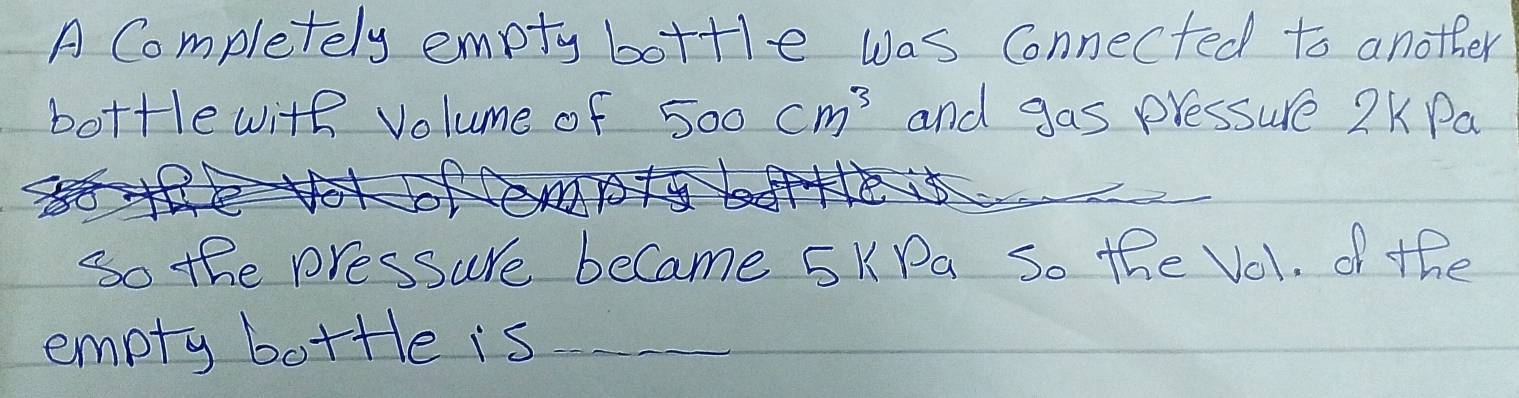 A Completely empty bottle was connected to another
bottle with volume of 500 cm³ and gas pressure 2K Pa
so the vol of empty bottle is ........
So the pressure became 5K Pa So the Vol. of the
empty bottle is --------